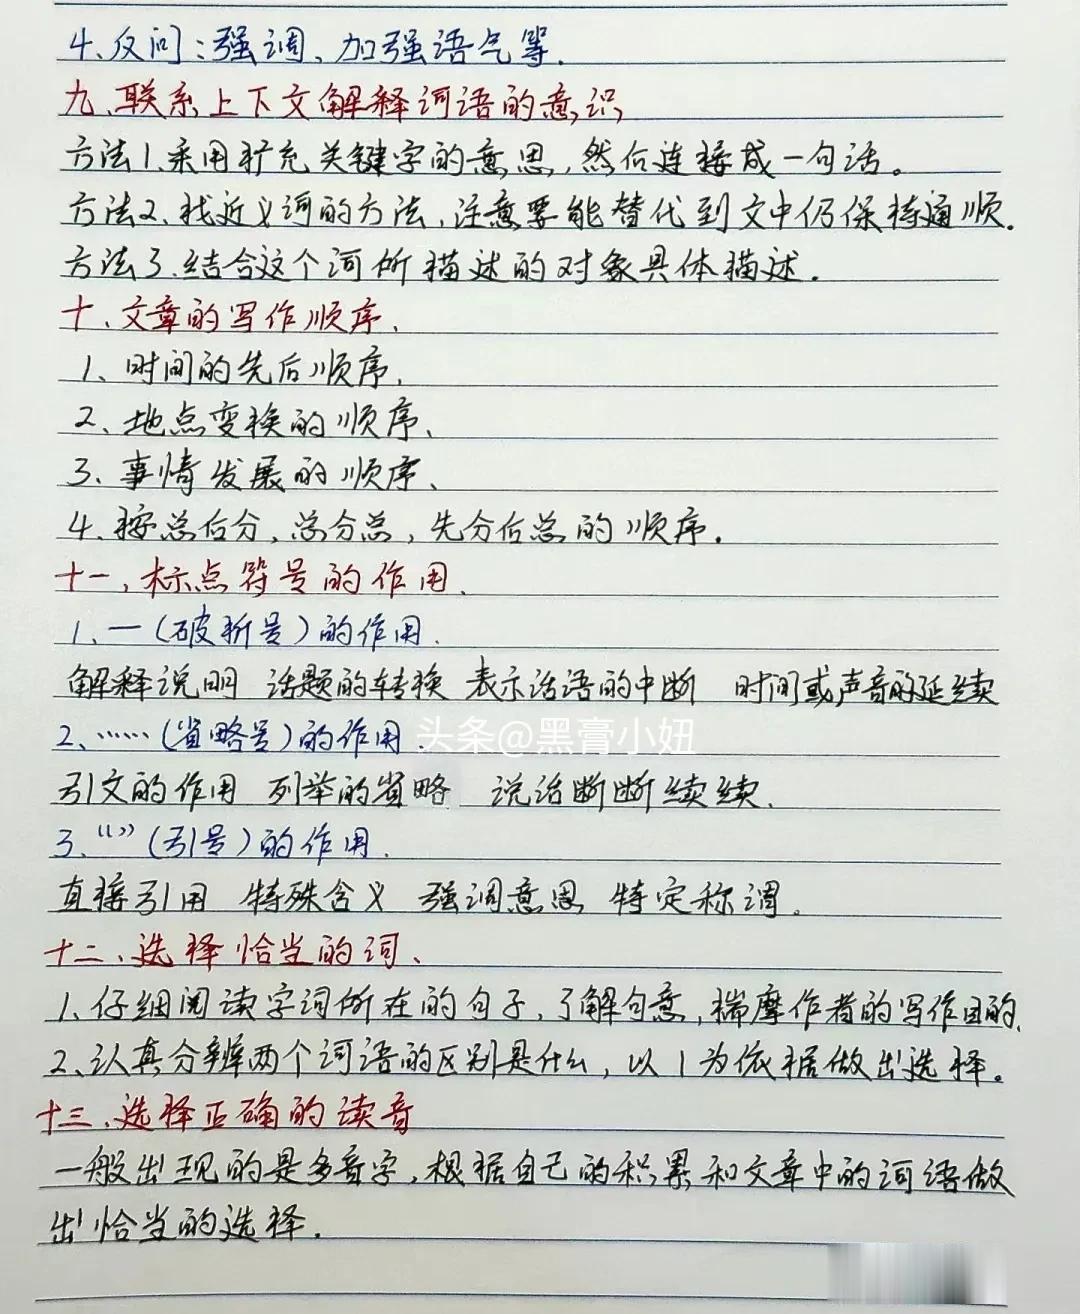 4、反问:强调、加强语气等.
九、联系上下文解释词语的意识
方法1.采用扩充关键字的意思,然后连接成一句话。
方法2、找近义词的方法,注意要能替代到文中仍保持通顺.
方法3.结合这个词所描述的对象具体描述.
十、文章的写作顺序、
1、时间的先后顺序,
2、地点变换的顺序、
3、事情发展的顺序、
4、按总后分,总分总,先分后总的顺序.
十一,标点符号的作用.
1、一(破折号)的作用.
解释说明 话题的转换 表示话语的中断 时间或声音的延续
2、……(省略号)的作用.
头条@黑膏小妞
引文的作用 列举的省略 说话断断续续、
3、“”(引号)的作用.
直接引用 特殊含义 强调意思 特定称谓。
十二、选择恰当的词、
1、仔细阅读字词所在的句子,了解句意,揣摩作者的写作目的、
2、认真分辨两个词语的区别是什么,以1为依据做出选择。
十三、选择正确的读音
一般出现的是多音字,根据自己的积累和文章中的词语做
出恰当的选择.